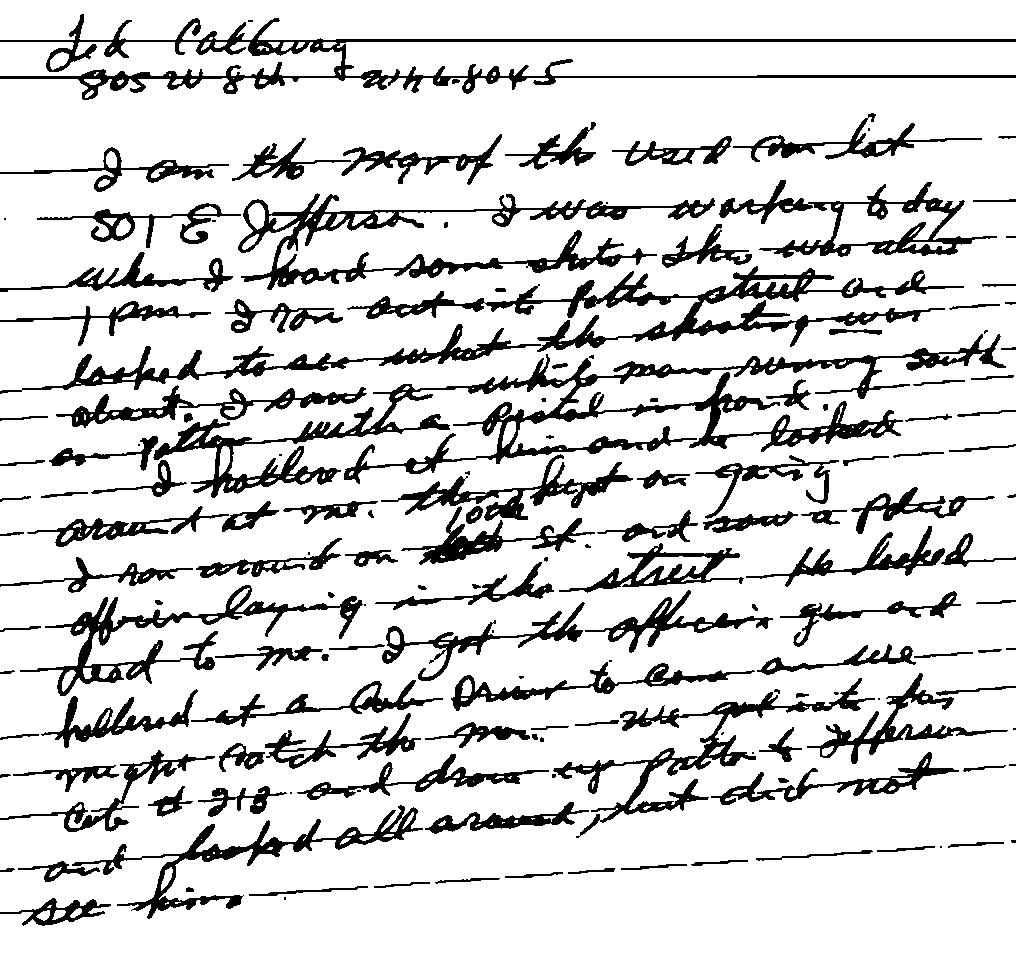 Ted Callaway
805 W 8th. WH6-8045
I am the Mgr of the Used Car lot
501 E Jefferson. I was working today
when I heard some shots, this was about
1 pm. I ran out into Patton street and
looked to see what the shooting was
about. I saw a white man running south
on Patton with a Pistol in hand.
I hollered at him and he looked
around at me. then kept on going
I ran around on 10th St. and saw a Police
officer laying in the street. He looked
dead to me. I got the officer's gun and
hollered at a Cab Driver to come on we
might catch the man. We got into his
Cab # 213 and drove up Patton to Jefferson
and looked all around, but did not
see him.